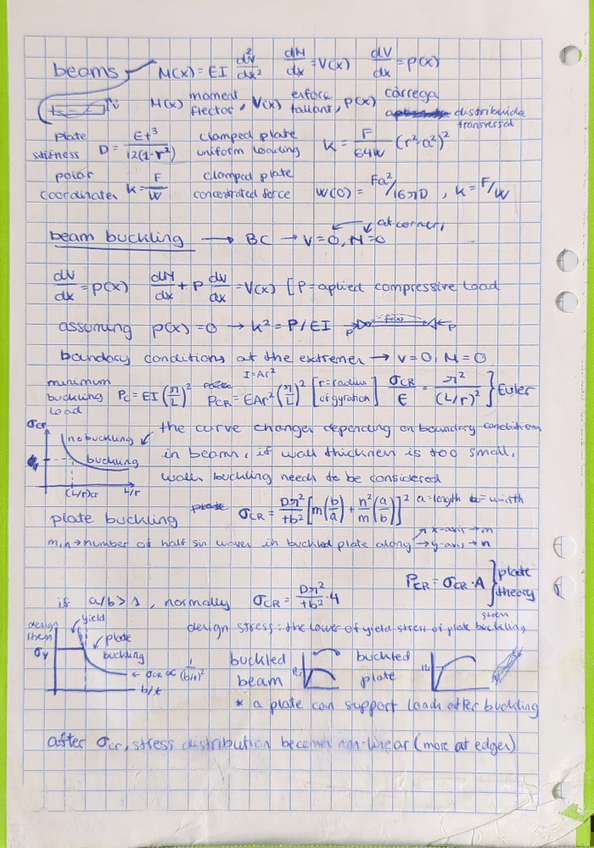 beams M(x) = EI d²v/dx² dM/dx = V(x) dV/dx = p(x)
M(x) moment flector, V(x) esforç tallant, p(x) càrrega distribuida transversal
plate stiffness D = Et³/12(1-ν²) clamped plate uniform loading k = F/64W (r²-a²)²
polar coordinates k = F/W clamped plate concentrated force W(0) = Fa²/16πD , k = F/W
beam buckling → BC → V=0, M=0 at corners
dV/dx = p(x) dM/dx + P dv/dx = V(x) [P = aplied compressive load
assuming p(x) = 0 → k² = P/EI P P
boundary conditions at the extremes → v=0, M=0
I = Ar²
minimum buckling load Pc = EI (π/L)² PCR = EAr² (π/L)² [r = radius of gyration] σCR/E = π²/(L/r)² } Euler
σCR no buckling buckling (L/r)cr L/r
the curve changes depending on boundary conditions
in beam, if wall thickness is too small,
walls buckling needs to be considered
plate buckling σCR = Dπ²/tb² [m(b/a) + n²/m (a/b)]² a = length b = width
m, n → number of half sin waves in buckled plate along x-axis → m y-axis → n
PCR = σCR · A } plate theory
if a/b > 1, normally σCR = Dπ²/tb² · 4
design stress: the lower of yield stress of plate buckling stress
design stress yield σy plate buckling ← σCR ∝ 1/(b/t)² b/t
buckled beam buckled plate
* a plate can support loads after buckling
after σcr, stress distribution becomes non-linear (more at edges)